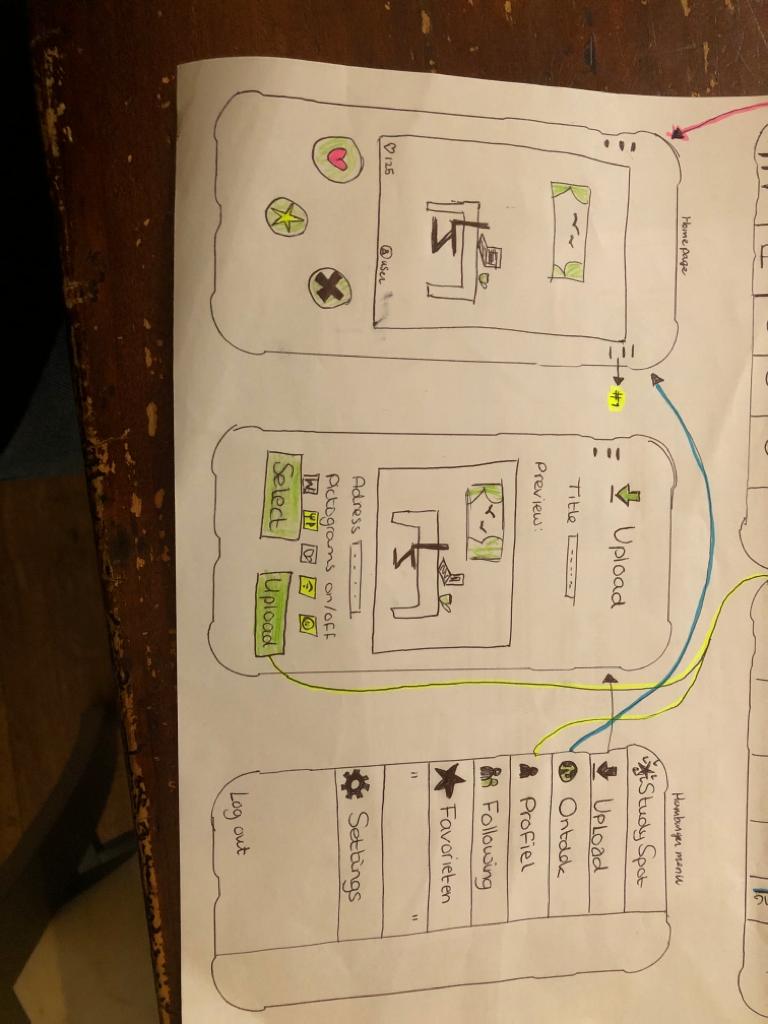 Home page
♡ 125
user
#1
Upload
Title
Preview:
Adress
Pictograms on/off
Select
Upload
Hamburger menu
Study Spot
Upload
Ontdek
Profiel
Following
Favorieten
" "
Settings
Log out